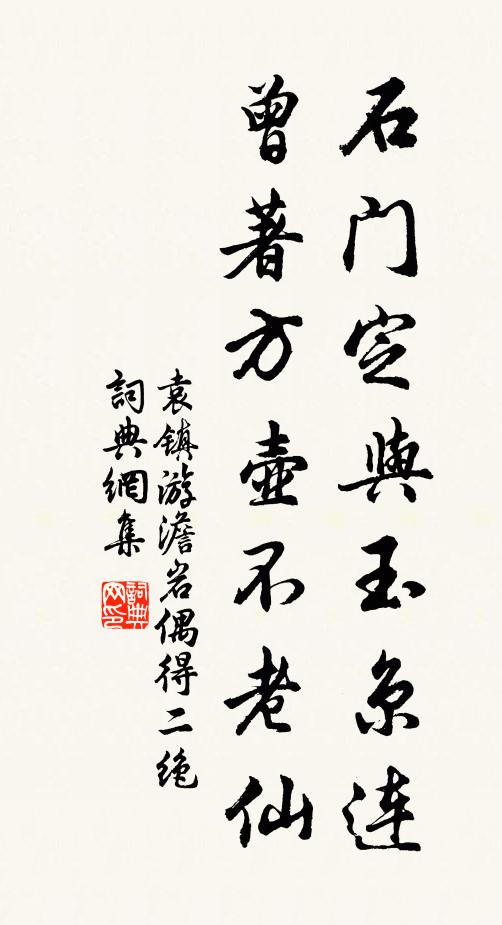 石门定與玉京連
曾著方壺不老仙
袁镇游澹岩偶得二絶
詞典網集
詞典网印